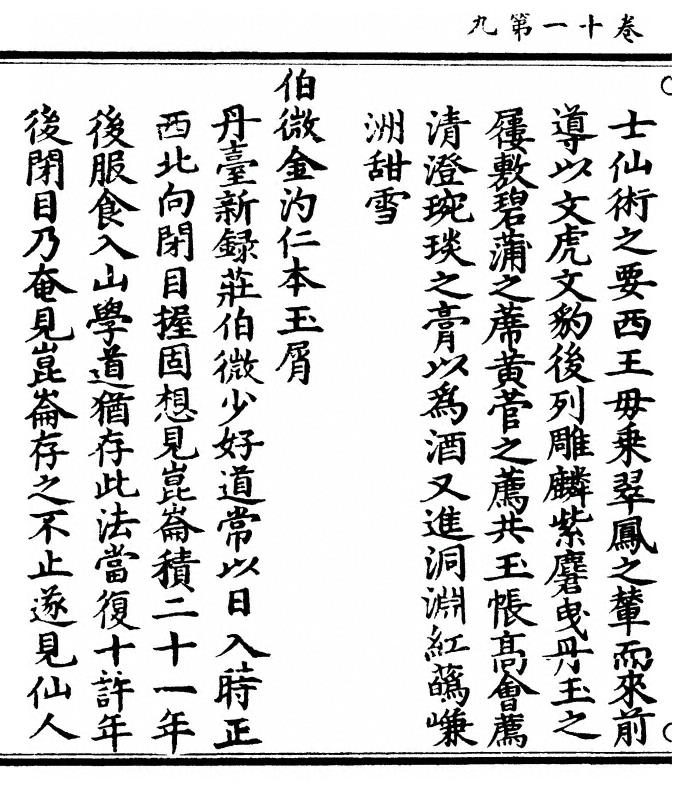 卷十一第九
士仙術之要西王毋乗翠鳳之輦而來前
導以文虎文豹後列雕麟紫麏曳丹玉之
屨敷碧蒲之蓆黄菅之薦共玉帳髙會薦
清澄琬琰之膏以爲酒又進洞淵紅蘤嵰
洲甜雪
伯微金汋仁本玉屑
丹臺新録莊伯微少好道常以日入時正
西北向閉目握固想見崑崙積二十一年
後服食入山學道猶存此法當復十許年
後閉目乃奄見崑崙存之不止遂見仙人